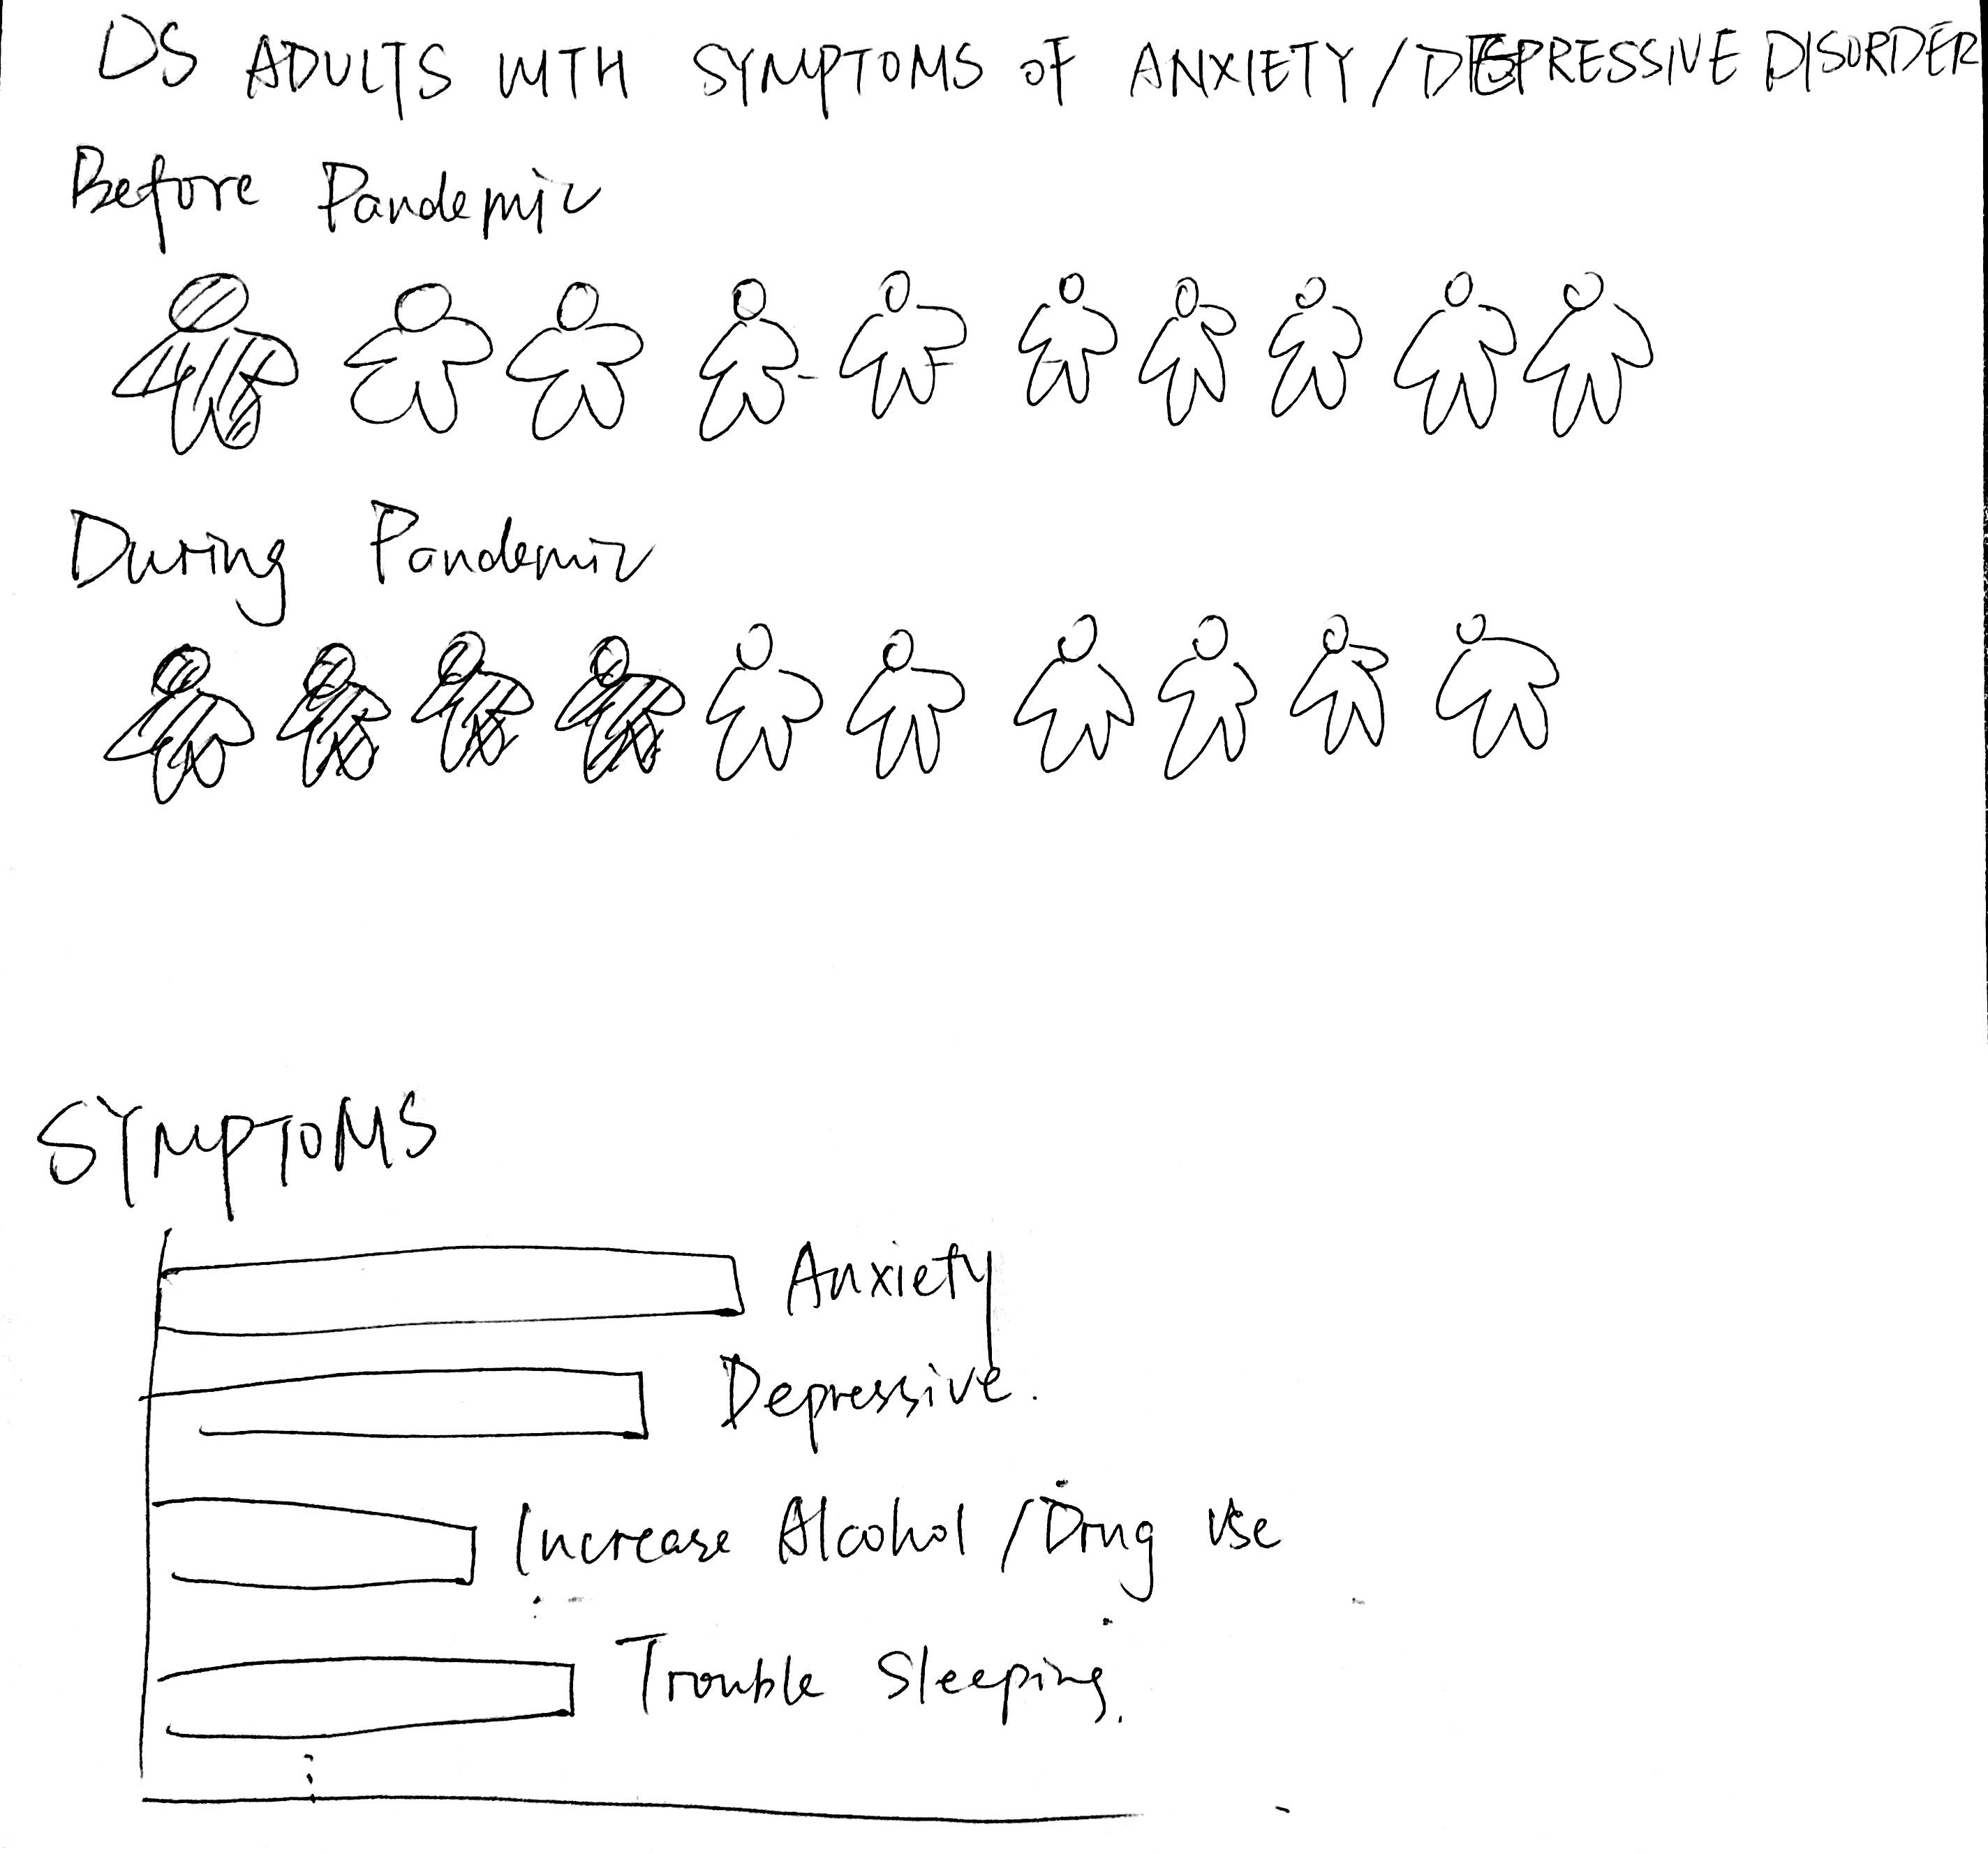 DS ADULTS WITH SYMPTOMS OF ANXIETY/DEPRESSIVE DISORDER
Before Pandemic
During Pandemic
SYMPTOMS
Anxiety
Depressive.
Increase Alcohol/Drug Use
Trouble Sleeping.